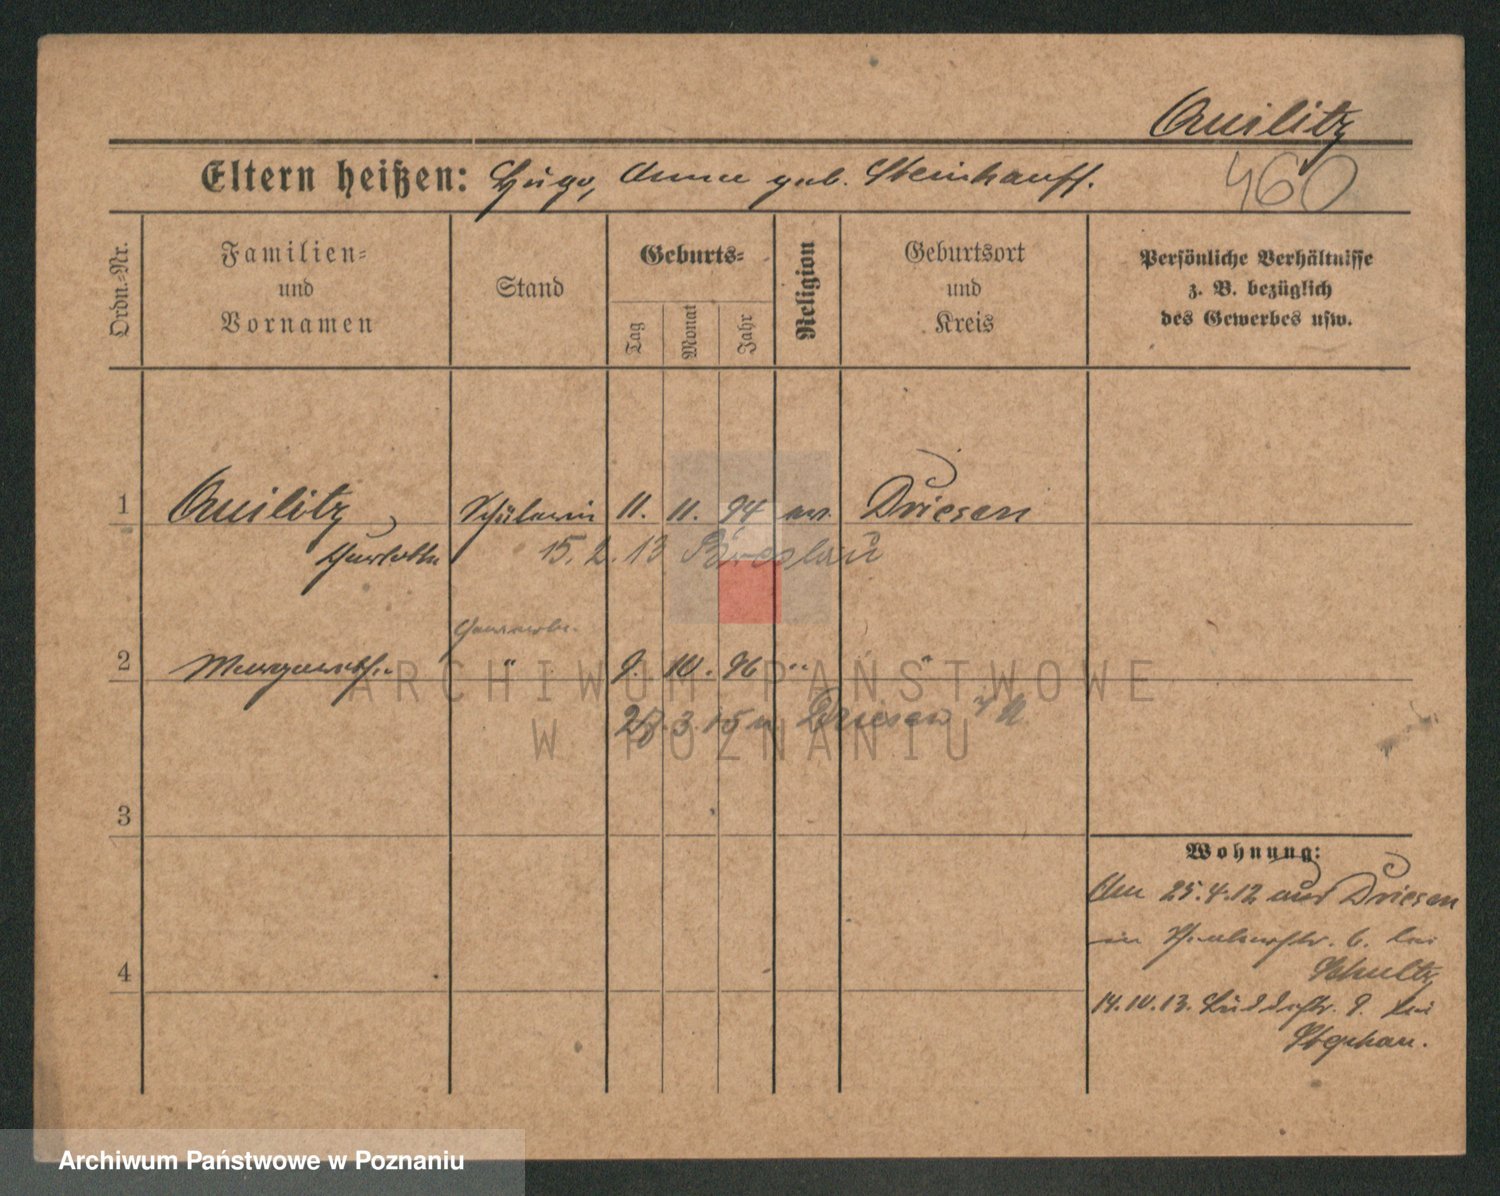 Quilitz
Eltern heißen: Hugo, Anna geb. Steinhauff.
460
Ordn.-Nr.
Familien-
und
Vornamen
Stand
Geburts-
Tag
Monat
Jahr
Religion
Geburtsort
und
Kreis
Persönliche Verhältnisse
z. B. bezüglich
des Gewerbes usw.
1 Quilitz Schülerin 11. 11. 94 ev. Driesen
Charlotte
15. 2. 13 Breslau
2 Margarethe " 9. 10. 96 " "
28. 3. 15 n Driesen
3
4
Wohnung:
Am 25.4.12 aus Driesen
in 6. bei
Schultz
14.10.13. 9. bei
Stephan.
ARCHIWUM PAŃSTWOWE
W POZNANIU
Archiwum Państwowe w Poznaniu